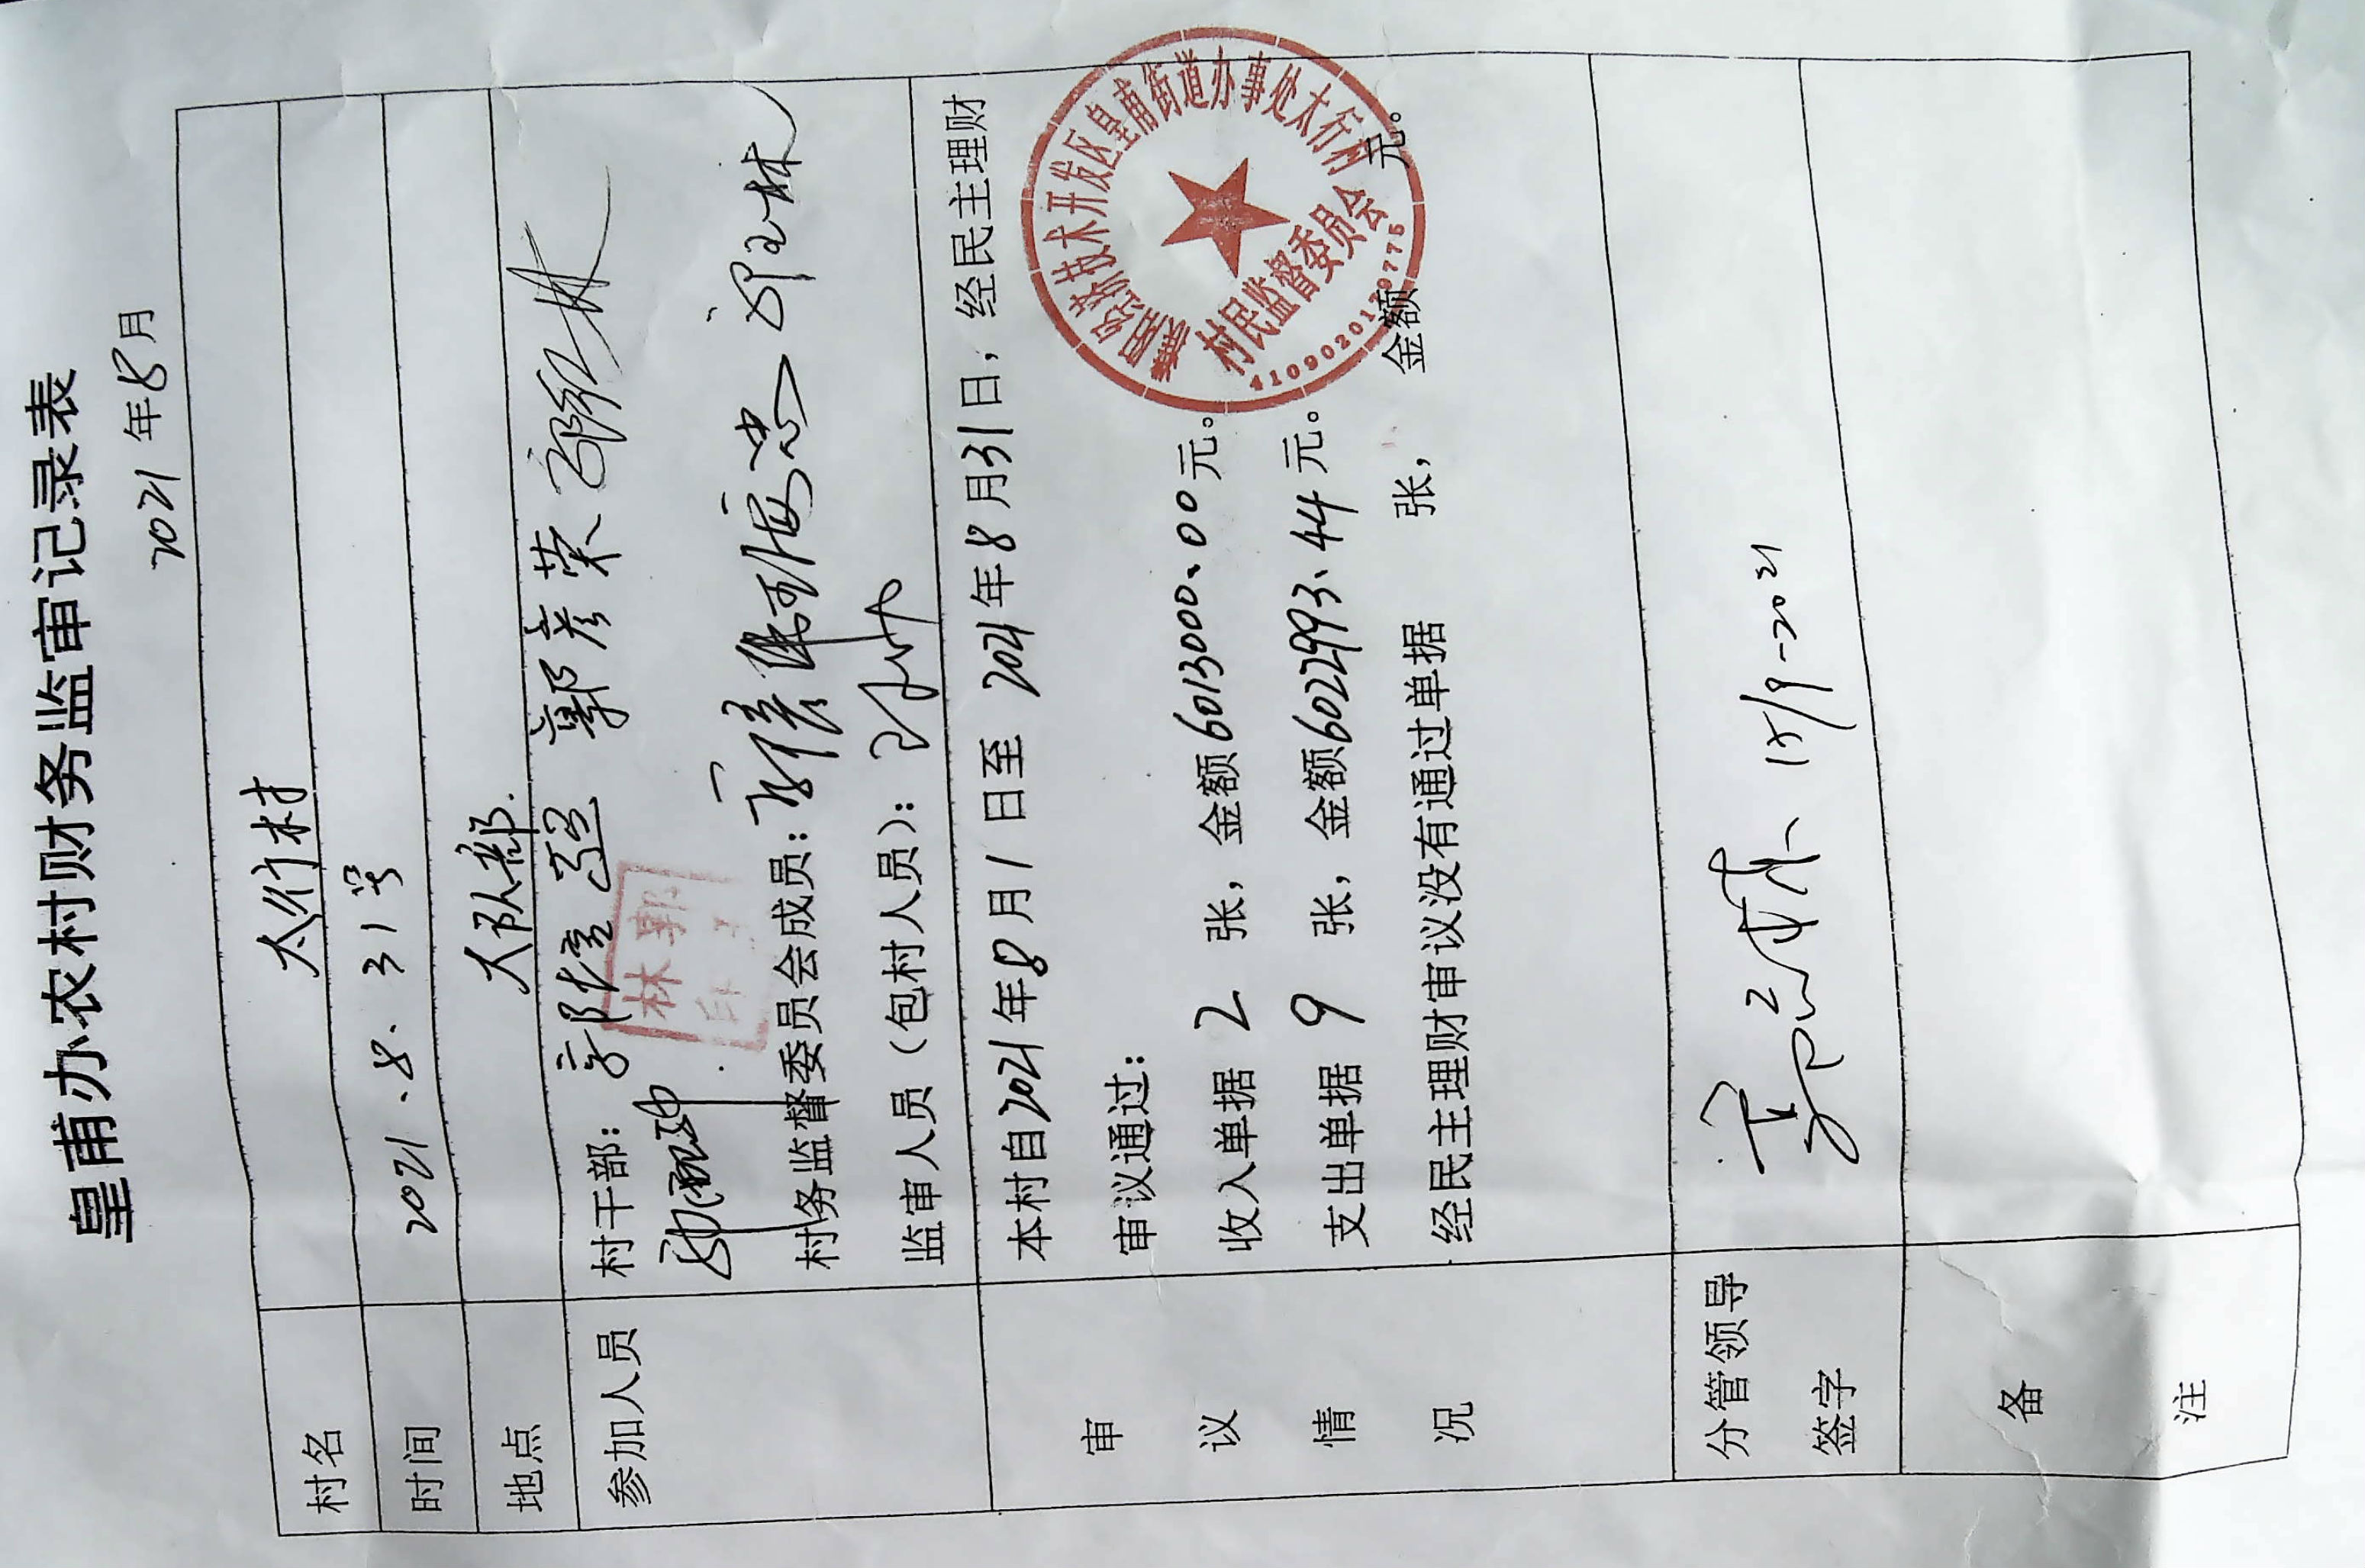 皇甫办农村财务监审记录表
2021年8月
村名 太行村
时间 2021.8.31号
地点 大队部.
参加人员 村干部: 郭彦荣
村务监督委员会成员:
监审人员(包村人员):
审议情况 本村自2021年8月1日至2021年8月31日,经民主理财
审议通过:
收入单据 2 张,金额6013000.00元。
支出单据 9 张,金额6022993.44元。
经民主理财审议没有通过单据 张, 金额 元。
濮阳经济技术开发区皇甫街道办事处太行村
村民监督委员会
4109020179775
分管领导
签字 15/9-2021
备
注